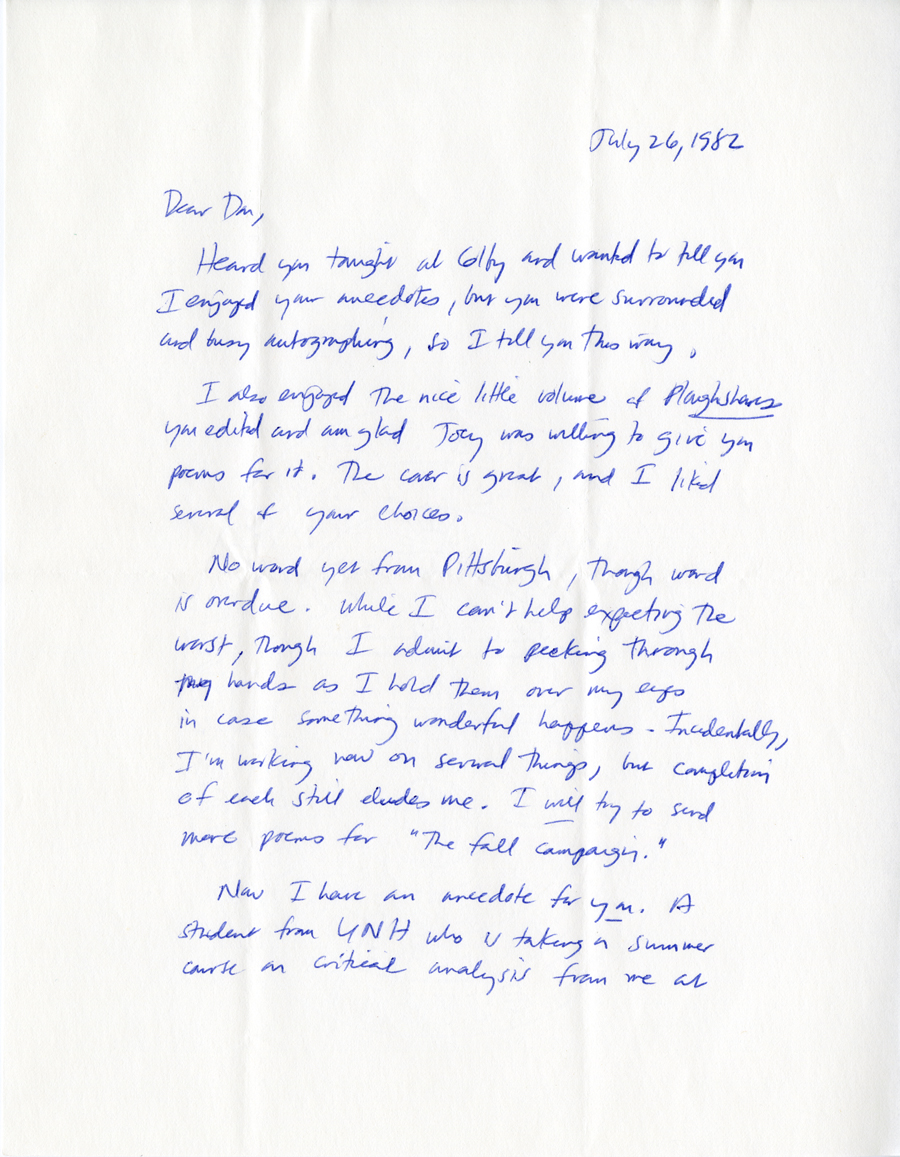 July 26, 1982
Dear Don,
Heard you tonight at Colby and wanted to tell you
I enjoyed your anecdotes, but you were surrounded
and busy autographing, so I tell you this way.
I also enjoyed the nice little volume of Ploughshares
you edited and am glad Joey was willing to give you
poems for it. The cover is great, and I liked
several of your choices.
No word yet from Pittsburgh, though word
is overdue. While I can't help expecting the
worst, though I admit to peeking through
my hands as I hold them over my eyes
in case something wonderful happens - Incidentally,
I'm working now on several things, but completion
of each still eludes me. I will try to send
more poems for "The fall campaign."
Now I have an anecdote for you. A
student from UNH who is taking a summer
course on critical analysis from me at